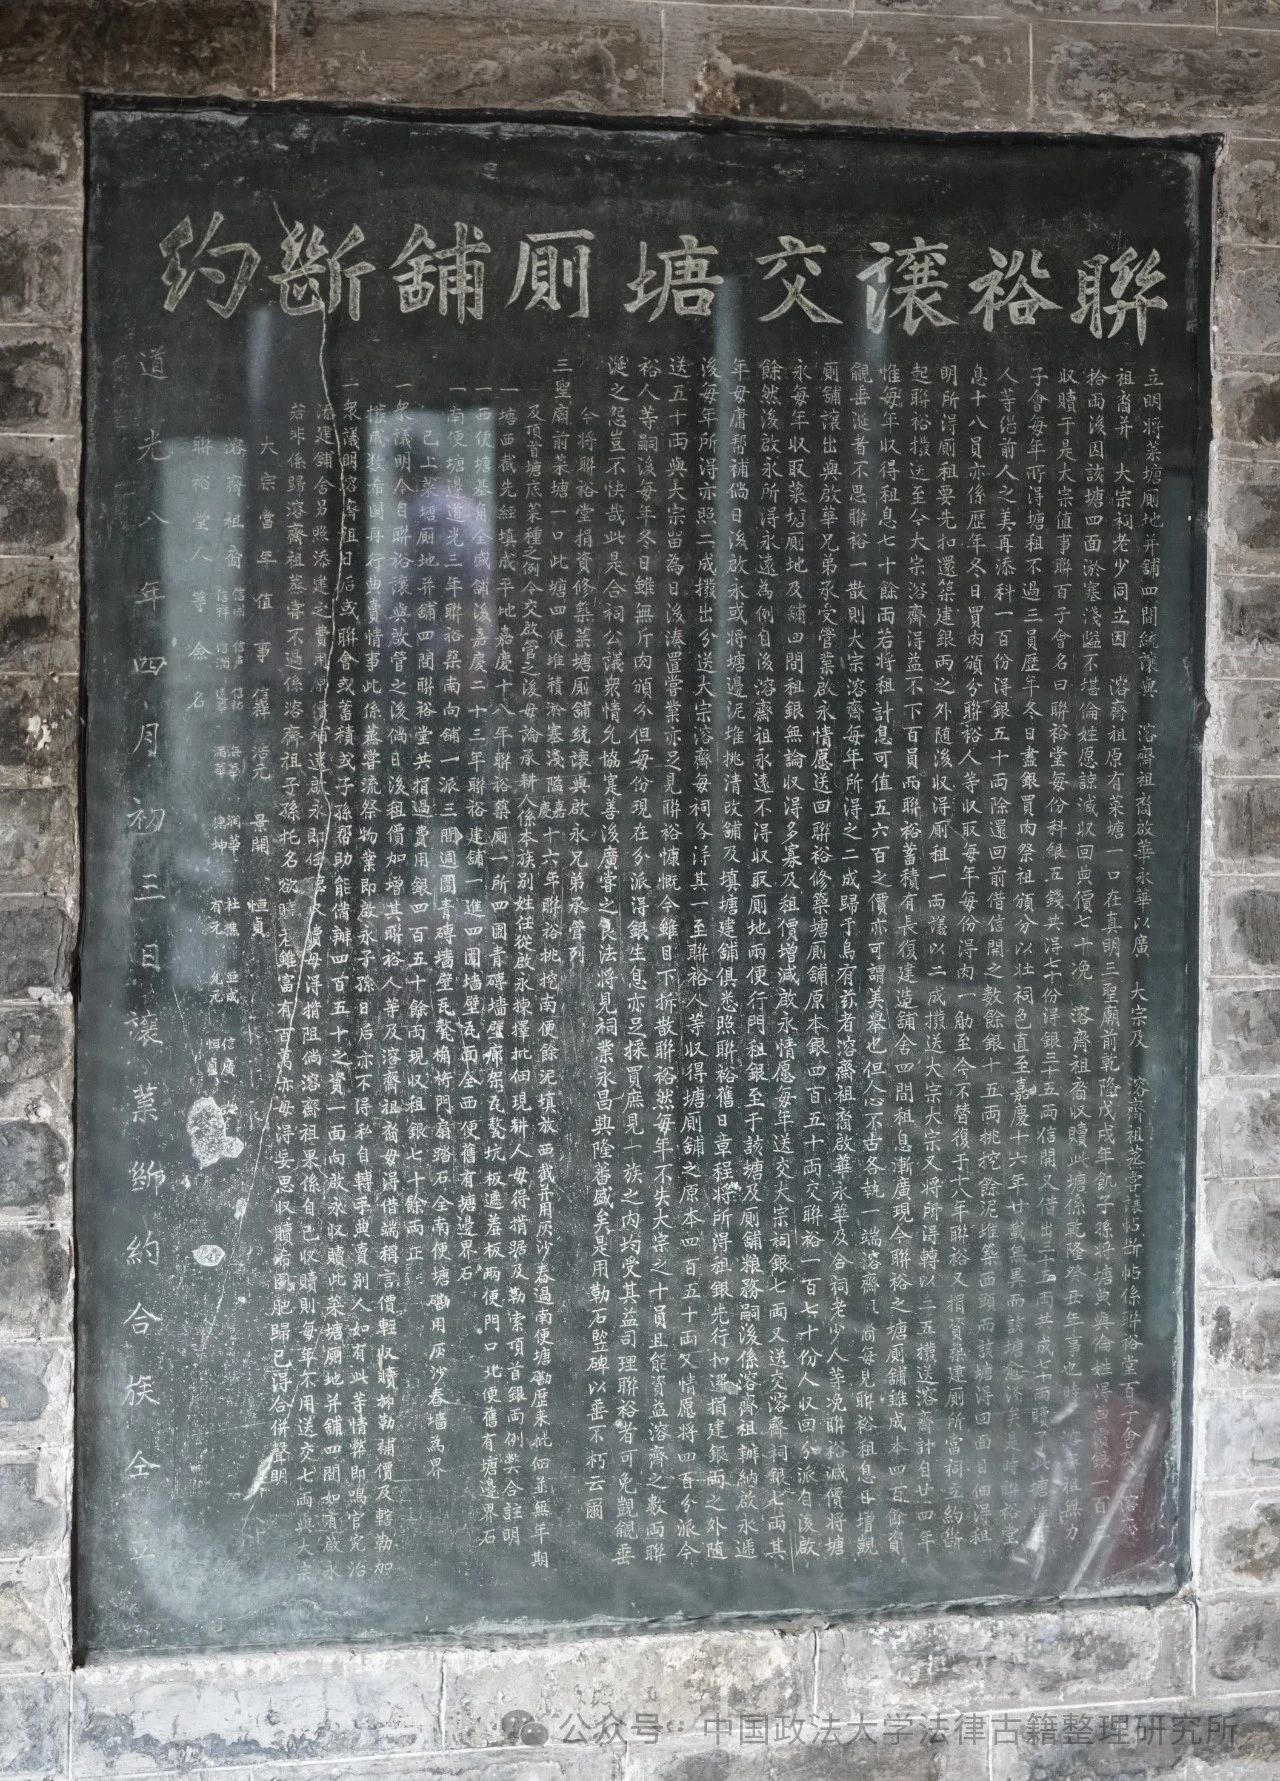 聯裕讓交塘厠舖斷約
立明將菜塘厠地并舖四間統讓與 溶齊祖裔啟華永華以廣 大宗及 溶齊祖蒸嘗讓帖
祖裔并 大宗祠老少同立因 溶齊祖原有菜塘一口在真明三聖廟前乾隆戊戌年飢子孫將塘典與倫姓得典價銀一百
拾兩後因該塘四面淤塞淺隘不堪倫姓愿諒減收回典價七十 溶齊祖裔收贖此塘係乾隆癸丑年事也時溶齊祖無力
收贖于是大宗值事聯百子會名曰聯裕堂每份科銀五錢共得七十份得銀三十五兩信開又借出三十五兩共成七十兩贖了此塘
子會每年所得塘租不過三員歷年冬日盡銀買肉祭祖頒分以壯祠色直至嘉慶十六年廿載無異而該塘愈淤矣是時聯裕堂
人等繼前人之美再添科一百份得銀五十兩除還回前借信開之數餘銀十五兩挑挖餘泥堆築西頭而該塘得回面目佃得租
息十八員亦係歷年冬日買肉頒分聯裕人等收取每年每份得肉一觔至今不替復于十八年聯裕又捐資築建厠所當祠立約斷
明所得厠租要先扣還築建銀兩之外隨後收得厠租一兩議以二成撥送大宗大宗又將所得轉以二五撥送溶齊計自廿四年
起聯裕撥送至今大宗溶齊得益不下百員而聯裕蓄積有長復建造舖舍四間租息漸廣現今聯裕之塘厠舖雖成本四百餘資
惟每年收得租息七十餘兩若將租計息可值五六百之價亦可謂美舉也但人心不古各執一端溶齊 裔每見聯裕租息日增覬
覦垂涎者不思聯裕一散則大宗溶齊每年所得之二成歸于烏有茲者溶齊祖裔啟華永華及合祠老少人等浼聯裕減價將塘
厠舖讓出與啟華兄弟承受管業啟永情愿送回聯裕修築塘厠舖原本銀四百五十兩交聯裕一百七十份人收回分派自後啟
永每年收取菜塘厠地及舖四間租銀無論收得多寡及租價增減啟永情愿每年送交大宗祠銀七兩又送交溶齊祠銀七兩其
餘然後啟永所得永遠為例自後溶齊祖永遠不得收取厠地兩便行門租銀至于該塘及厠舖糧務嗣後係溶齊祖辦納啟永遞
年毋庸帮補倘日後啟永或將塘邊泥堆挑清改舖及填塘建舖俱悉照聯裕舊日章程將所得租銀先行扣還捐建銀兩之外隨
後每年所得亦照二成撥出分送大宗溶齊每祠各得其一至聯裕人等收得塘厠舖之原本四百五十兩又情愿將四百分派今
送五十兩與大宗留為日後湊置嘗業亦足見聯裕慷慨今雖目下拆散聯裕然每年不失大宗之十員且能資益溶齊之數兩聯
裕人等嗣後每年冬日雖無斤肉頒分但每份現在分派得銀生息亦足採買庶見一族之內均受其益司理聯裕者可免覬覦垂
涎之怨豈不快哉此是合祠公議眾情允協寔善後廣嘗之良法將見祠業永昌興隆善盛矣是用勒石竪碑以垂不朽云爾
今將聯裕堂捐資修築菜塘厠舖統讓與啟永兄弟承管列
三聖廟前菜塘一口此塘四便堆積淤塞淺隘嘉慶十六年聯裕挑挖南便餘泥填放西截并用灰沙舂過南便塘磡歷來批佃並無年期
及頂首塘底菜種之例今交啟管之後毋論承耕人係本族別姓任從啟永揀擇批佃現耕人毋得揹踞及勒索頂首銀兩例與合註明
一塘西截先經填成平地嘉慶十八年聯裕築厠一所四圍青磚墻壁廊架瓦甃坑板遮羞板兩便門口北便舊有塘邊界石
一西便塘基角全成舖後嘉慶二十三年聯裕建舖一進四圍墻壁瓦面全西便舊有塘邊界石
一南便塘邊道光三年聯裕築南向舖一派三間週圍青磚墻壁瓦甃桷桁門扇踏石全南便塘磡用灰沙舂墻為界
已上菜塘厠地并舖四間聯裕堂共捐過費用銀四百五十餘兩現收租銀七十餘兩正
一眾議明今自聯裕讓與啟管之後倘日後租價加增其聯裕人等及溶齊祖裔毋得借端稱言價輕收贖抑勒補價及轄勒加
撥成數希圖再行典賣情事此係蒸嘗流祭物業即啟永子孫日后亦不得私自轉手典賣別人如有此等情弊即鳴官究治
一眾議明溶齊祖日后或聯會或蓄積或子孫帮助能備辦四百五十之資一面向啟永收贖此菜塘厠地并舖四間如有啟永
添建舖舍另照添建之費用原價補還啟永即任愿收贖毋得揹阻倘溶齊祖果係自己收贖則每年不用送交七兩與大宗
若非係歸溶齊祖蒸嘗不過係溶齊祖子孫托名欲贖者雖富有百萬亦毋得妄思收贖希圖肥歸己得洽併聲明
大宗當年值事 信輝 浩元 景開 恒貞
溶齊祖裔
聯裕堂人等僉名
道光八年四月初三日讓業斷約合族仝立
公众号 · 中国政法大学法律古籍整理研究所